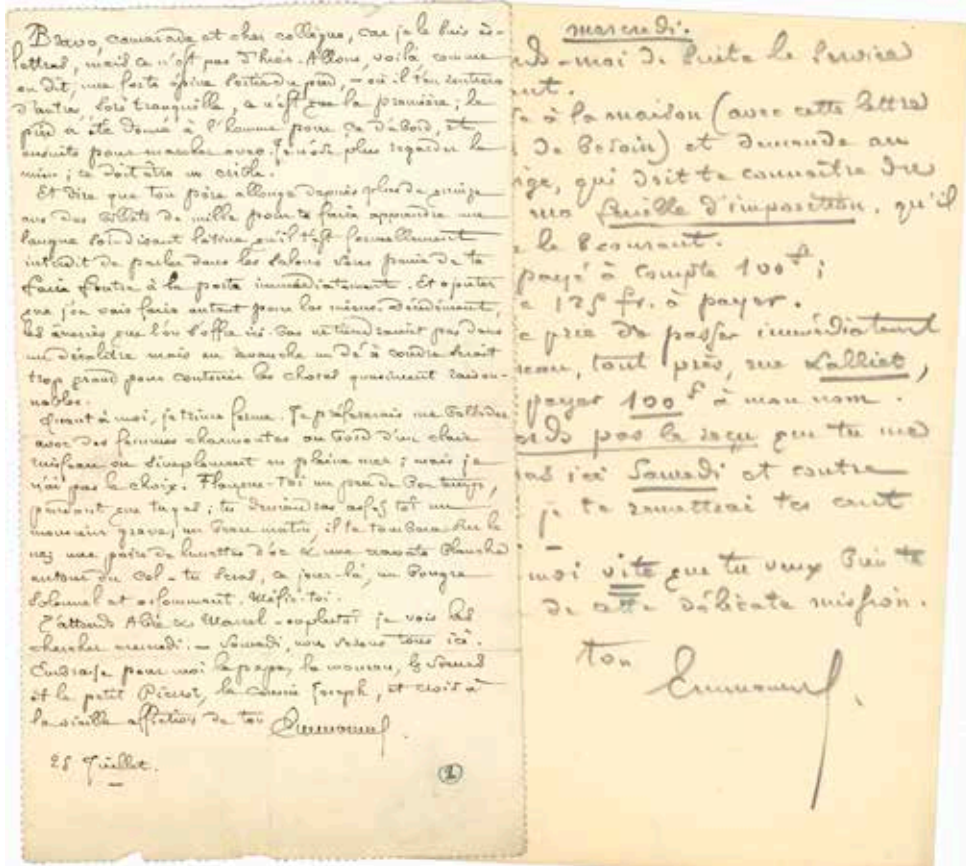 Bravo, camarade et cher collègue, car je le suis ès-
lettres, mais ce n'est pas d'hier. Allons, voilà, comme
on dit, une forte épine sortie du pied, – où il t'en rentrera
d'autre, sois tranquille, ce n'est que la première ; le
pied a été donné à l'homme pour ça d'abord, et
ensuite pour marcher avec. Je n'ose plus regarder le
mien ; ce doit être un crible.
Et dire que ton père allonge depuis plus de quinze
ans des billets de mille pour te faire apprendre une
langue soi-disant latine qu'il t'est formellement
interdit de parler dans les salons sous peine de te
faire foutre à la porte immédiatement. Et ajouter
que j'en vais faire autant pour les miens. Décidément,
les âneries que l'on s'offre ici-bas ne tiendraient pas dans
un décalitre mais en revanche un dé à coudre serait
trop grand pour contenir les choses quasiment raison-
nables.
Quant à moi, je trime ferme. Je préfèrerais me ballader
avec des femmes charmantes au bord d'un clair
ruisseau ou simplement en pleine mer ; mais je
n'ai pas le choix. Flanque-toi un peu de bon temps,
pendant que tu y es ; tu deviendras assez tôt un
monsieur grave ; un beau matin, il te tombera sur le
nez une paire de lunettes d'or & une cravate blanche
autour du col – tu seras, ce jour-là, un bougre
solennel et assommant. Méfie-toi.
J'attends & Marcel – ou plutôt je vais les
chercher mercredi. – Samedi, nous serons tous ici.
Embrasse pour moi le papa, la maman, les sœurs
et le petit Pierrot, la cousine Joseph, et crois à
la vieille affection de ton Emmanuel.
25 Juillet.
(2)
mercredi.
-moi de suite le service
à la maison (avec cette lettre
de besoin) et demande au
qui doit te connaître
ma feuille d'imposition, qu'il
le courant.
payé à compte 100 f ;
125 fr. à payer.
prie de passer immédiatement
tout près, rue Lalliet,
payer 100 f à mon nom.
pas le reçu que tu me
ici Samedi et contre
je te remettrai tes cent
moi vite que tu veux bien te
de cette délicate mission.
ton
Emmanuel.